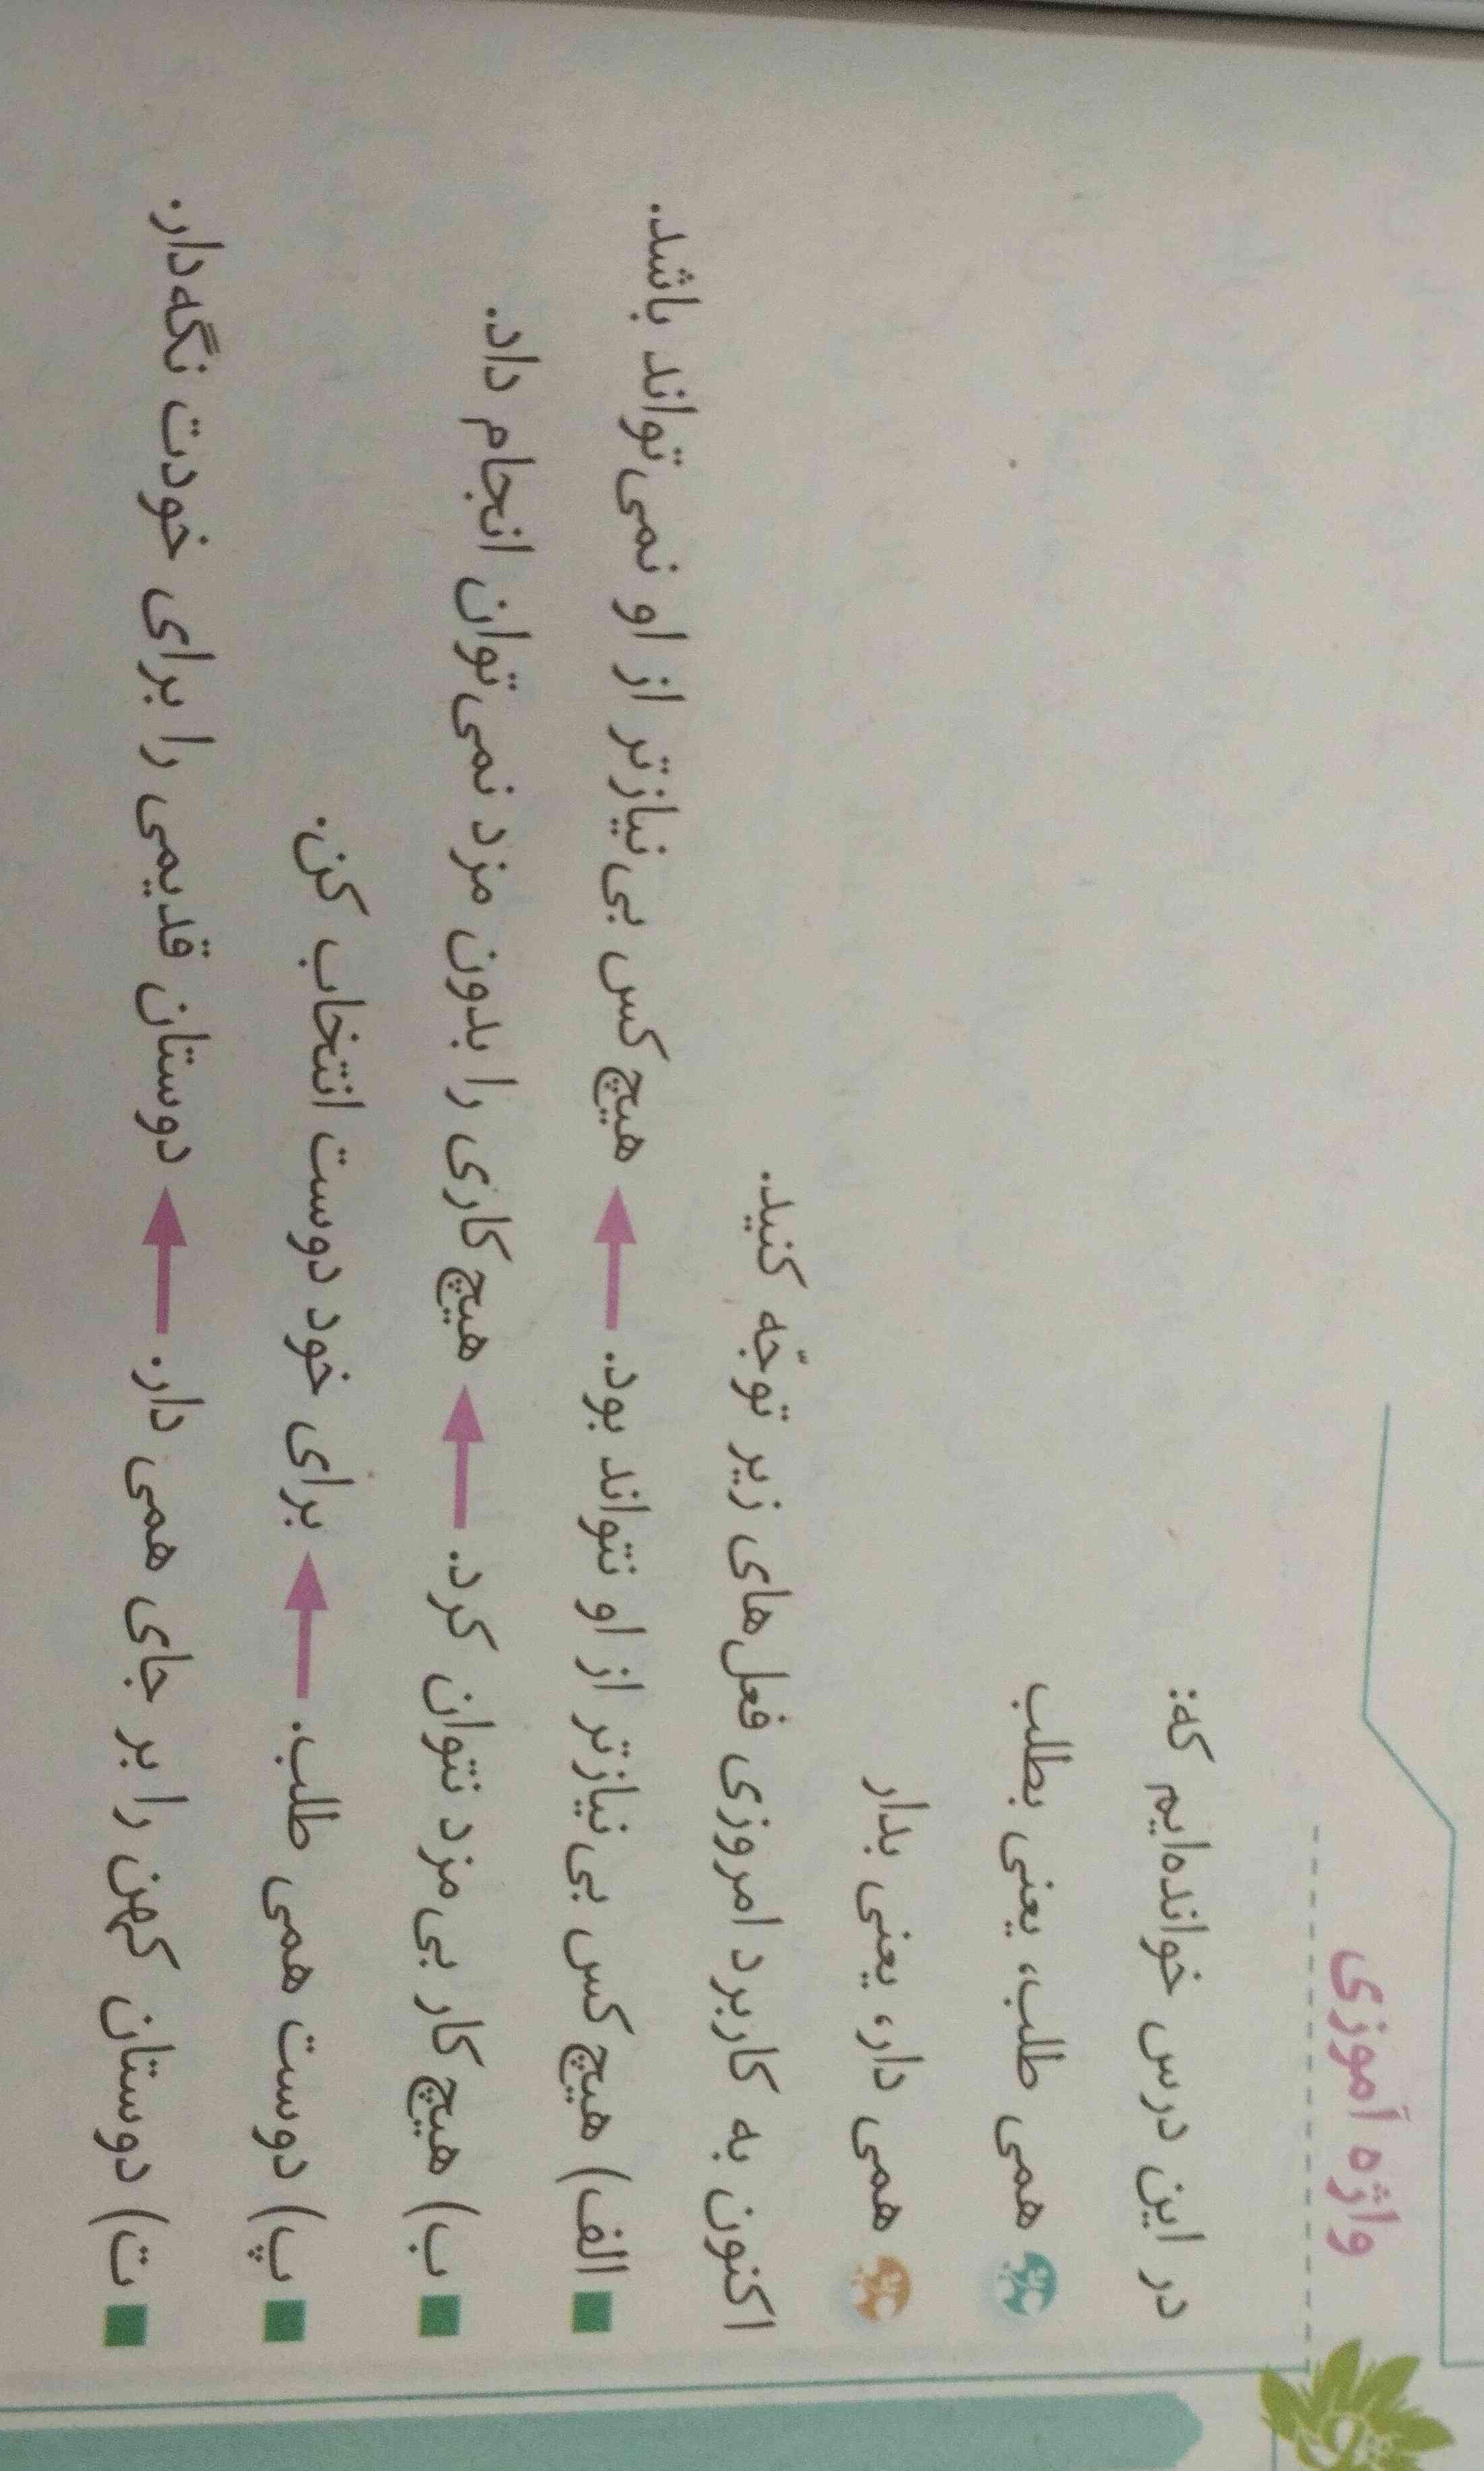 واژه آموزی
در این درس خوانده‌ایم که:
همی طلب، یعنی بطلب
همی دار، یعنی بدار
اکنون به کاربرد امروزی فعل‌های زیر توجّه کنید.
الف) هیچ کس بی‌نیازتر از او نتواند بود. ← هیچ کس بی‌نیازتر از او نمی‌تواند باشد.
ب) هیچ کار بی‌مزد نتوان کرد. ← هیچ کاری را بدون مزد نمی‌توان انجام داد.
پ) دوست همی طلب. ← برای خود دوست انتخاب کن.
ت) دوستان کهن را بر جای همی دار. ← دوستان قدیمی را برای خودت نگه‌دار.